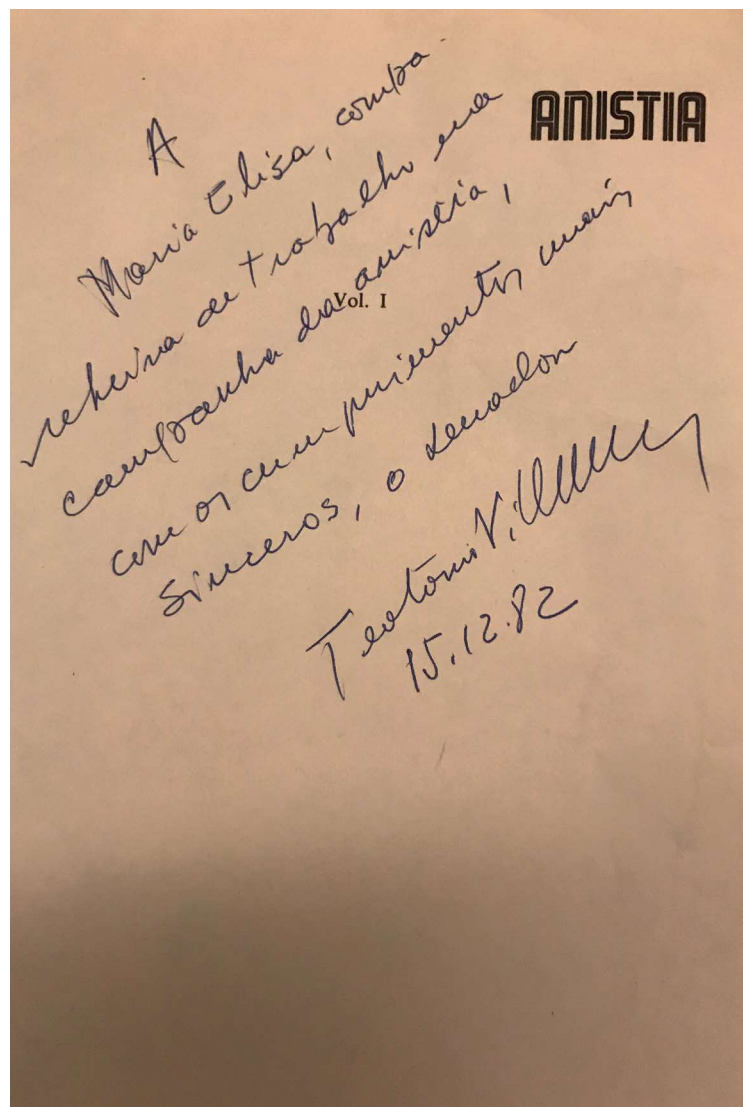 ANISTIA
Vol. I
A
Maria Elisa, compa-
nheira de trabalho na
campanha da anistia,
com os cumprimentos mais
sinceros, o senador
Teotônio Vilela
15.12.82